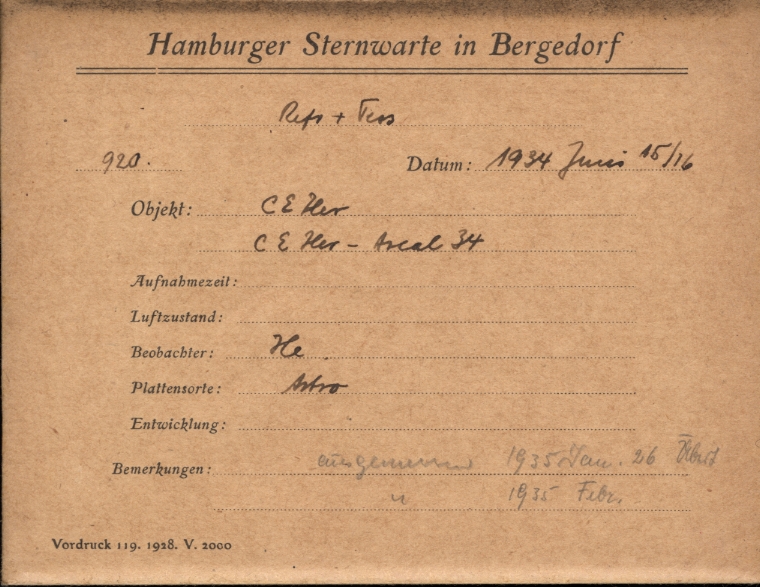 Hamburger Sternwarte in Bergedorf
Refr + Tess
920. Datum: 1934 Juni 15/16
Objekt: CE Her
CE Her - Areal 34
Aufnahmezeit:
Luftzustand:
Beobachter: He
Plattensorte: Astro
Entwicklung:
Bemerkungen: ausgemessen 1935 Jan. 26
" 1935 Febr.
Vordruck 119. 1928. V. 2000